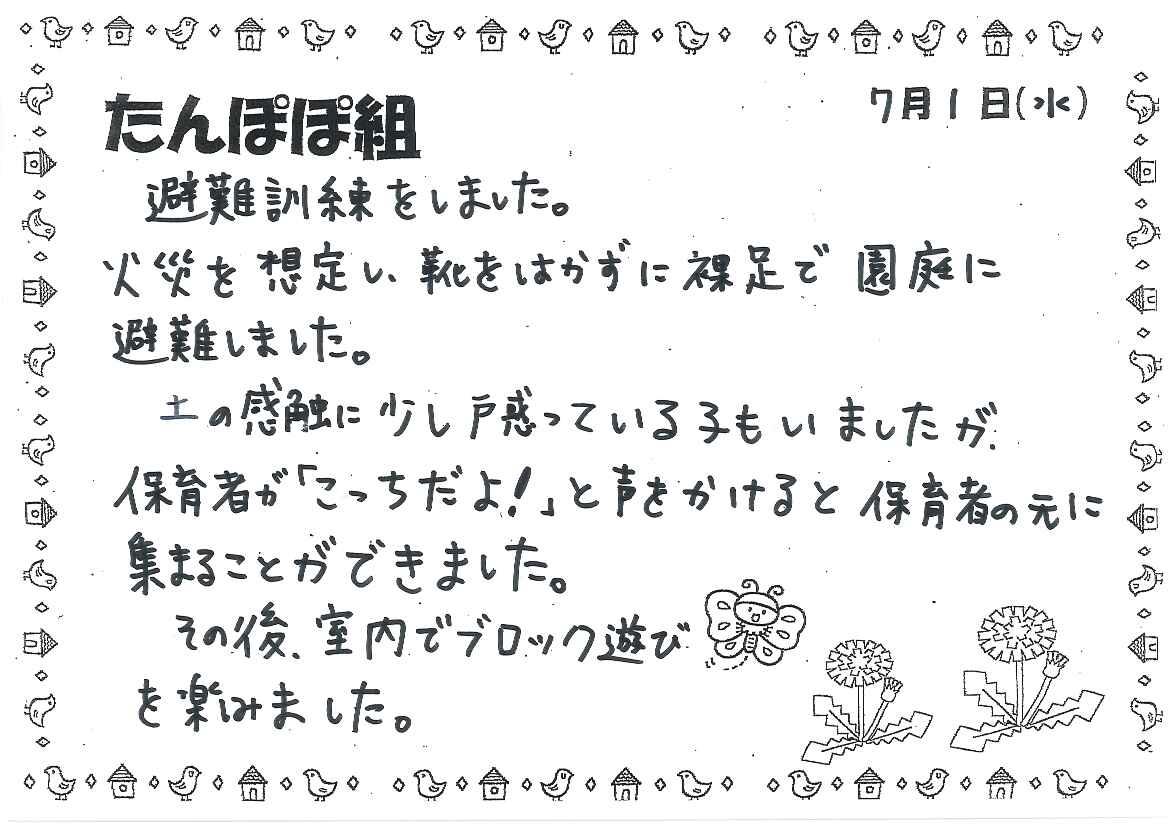 7月1日(水)
たんぽぽ組
避難訓練をしました。
火災を想定し、靴をはかずに裸足で園庭に
避難しました。
土の感触に少し戸惑っている子もいましたが、
保育者が「こっちだよ!」と声をかけると保育者の元に
集まることができました。
その後、室内でブロック遊び
を楽みました。